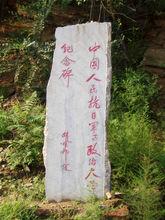 中国人民抗日军事政治大学
纪念碑